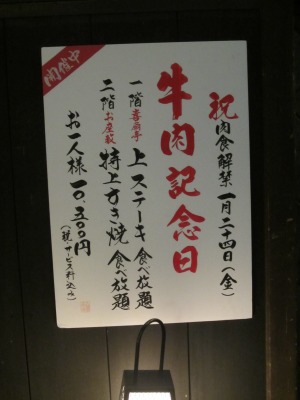 開催中
祝 肉食解禁 一月二十四日(金)
牛肉記念日
一階 喜扇亭 上ステーキ 食べ放題
二階 お座敷 特上すき焼 食べ放題
お一人様 一〇.五〇〇円
(税、サービス料込み)